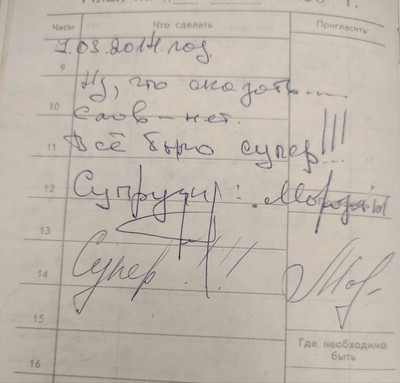 Часы Что сделать Пригласить
9.03.2014. год.
9
Ну, что сказать....
10
Слов – нет.
11
Всё было супер!!!
12
Супруги: Морозовы
13
14
Супер!!!
15
Где необходимо
16
быть